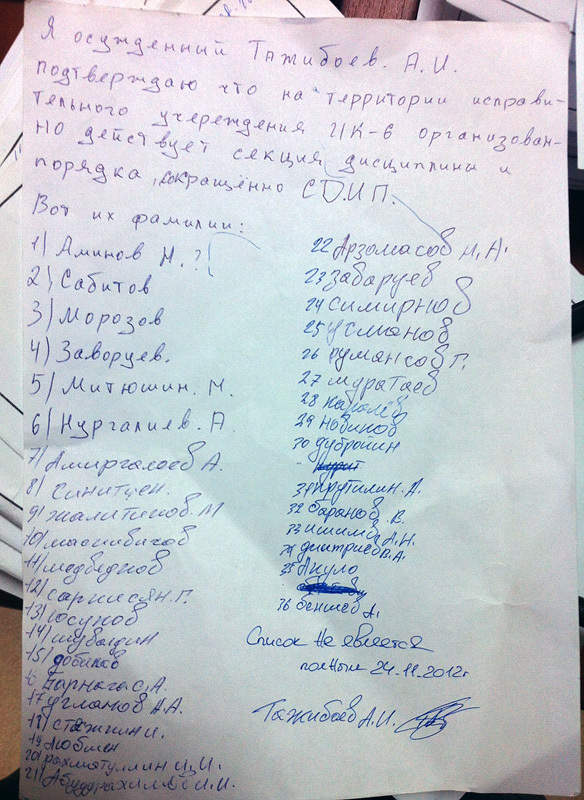 Я осужденный Тажибоев. А.И.
подтверждаю что на территории исправи-
тельного учереждения ИК-6 организован-
но действует секция дисциплины и
порядка, сокращённо СД.И П.
Вот их фамилии:
1) Аминов Н. ?
2) Сабитов
3) Морозов
4) Заворуев.
5) Митюшин. М.
6) Нургалиев. А.
7) Амиргалоев А.
8) Синитцен.
9) М
10)
11) медведков
12) Саркисян Г.
13) Юсупов
14) шубалдин
15) добиков
16 Барнага С.А.
17 Угланов А.А.
18) И.
19 Любмен
20) рахматуллин И.
21) И.И.
22 Арзомасов Н.А.
23 Забаруев
24 Симирнов
25 Усманов
26 Румансов Г.
27 муратаев
28 Каралёв
29 Новиков
30 дубройин
31 Крутилин. А.
32 Баранов В.
33 Ишимов А.Н.
34 дмитриев В.А.
35 Акуло
36 Бентшев А.
Список не является
полным 24.11.2012г
Тажибоев А.И.